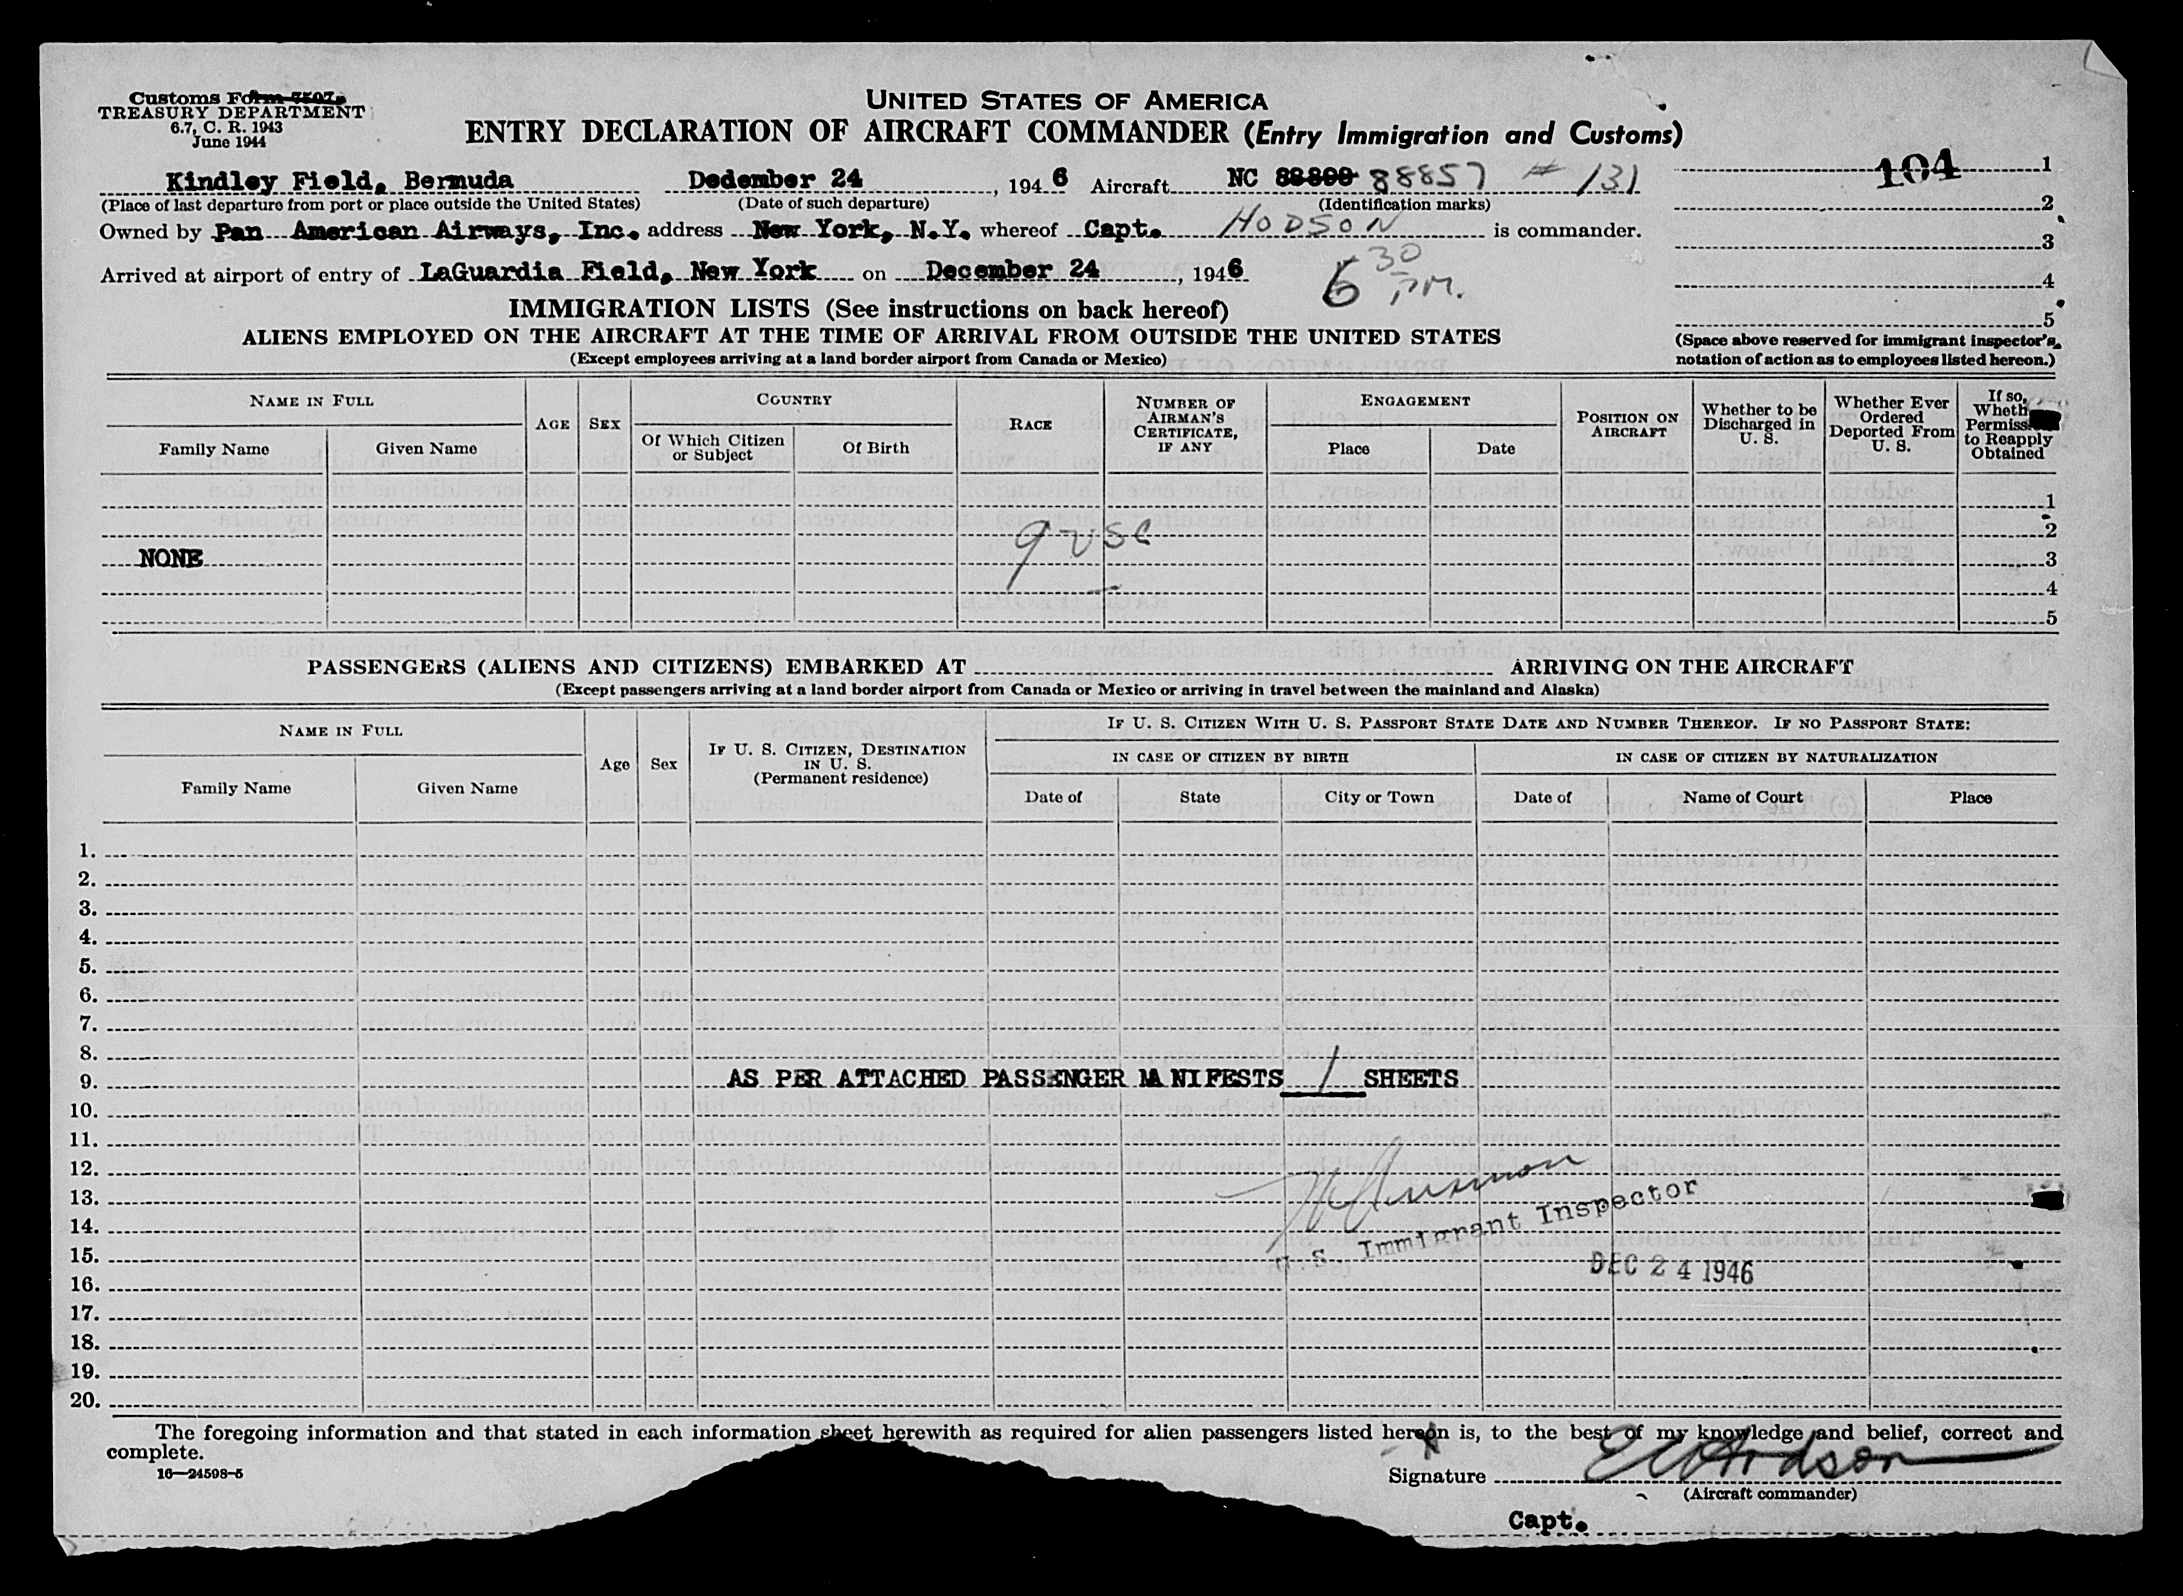 Customs Form 7507
TREASURY DEPARTMENT
6.7, C. R. 1943
June 1944
UNITED STATES OF AMERICA
ENTRY DECLARATION OF AIRCRAFT COMMANDER (Entry Immigration and Customs)
104 1
2
3
4
5
(Space above reserved for immigrant inspector's
notation of action as to employees listed hereon.)
Kindley Field, Bermuda Dedember 24, 1946 Aircraft NC 88800 88857 # 131
(Place of last departure from port or place outside the United States) (Date of such departure) (Identification marks)
Owned by Pan American Airways, Inc. address New York, N.Y. whereof Capt. HODSON is commander.
Arrived at airport of entry of LaGuardia Field, New York on December 24, 1946 6 30 PM.
IMMIGRATION LISTS (See instructions on back hereof)
ALIENS EMPLOYED ON THE AIRCRAFT AT THE TIME OF ARRIVAL FROM OUTSIDE THE UNITED STATES
(Except employees arriving at a land border airport from Canada or Mexico)
NAME IN FULL
Family Name Given Name
AGE SEX
COUNTRY
Of Which Citizen or Subject Of Birth
RACE
NUMBER OF AIRMAN'S CERTIFICATE, IF ANY
ENGAGEMENT
Place Date
POSITION ON AIRCRAFT
Whether to be Discharged in U. S.
Whether Ever Ordered Deported From U. S.
If so, Wheth Permiss to Reapply Obtained
1
2
NONE 9 USC 3
4
5
PASSENGERS (ALIENS AND CITIZENS) EMBARKED AT ARRIVING ON THE AIRCRAFT
(Except passengers arriving at a land border airport from Canada or Mexico or arriving in travel between the mainland and Alaska)
NAME IN FULL
Family Name Given Name
Age Sex
IF U. S. CITIZEN, DESTINATION IN U. S.
(Permanent residence)
IF U. S. CITIZEN WITH U. S. PASSPORT STATE DATE AND NUMBER THEREOF. IF NO PASSPORT STATE:
IN CASE OF CITIZEN BY BIRTH IN CASE OF CITIZEN BY NATURALIZATION
Date of State City or Town Date of Name of Court Place
1.
2.
3.
4.
5.
6.
7.
8.
9. AS PER ATTACHED PASSENGER MANIFESTS 1 SHEETS
10.
11.
12.
13.
14. U. S. Immigrant Inspector
15. DEC 24 1946
16.
17.
18.
19.
20.
The foregoing information and that stated in each information sheet herewith as required for alien passengers listed hereon is, to the best of my knowledge and belief, correct and
complete.
16—24598-5
Signature E C Hodson
(Aircraft commander)
Capt.